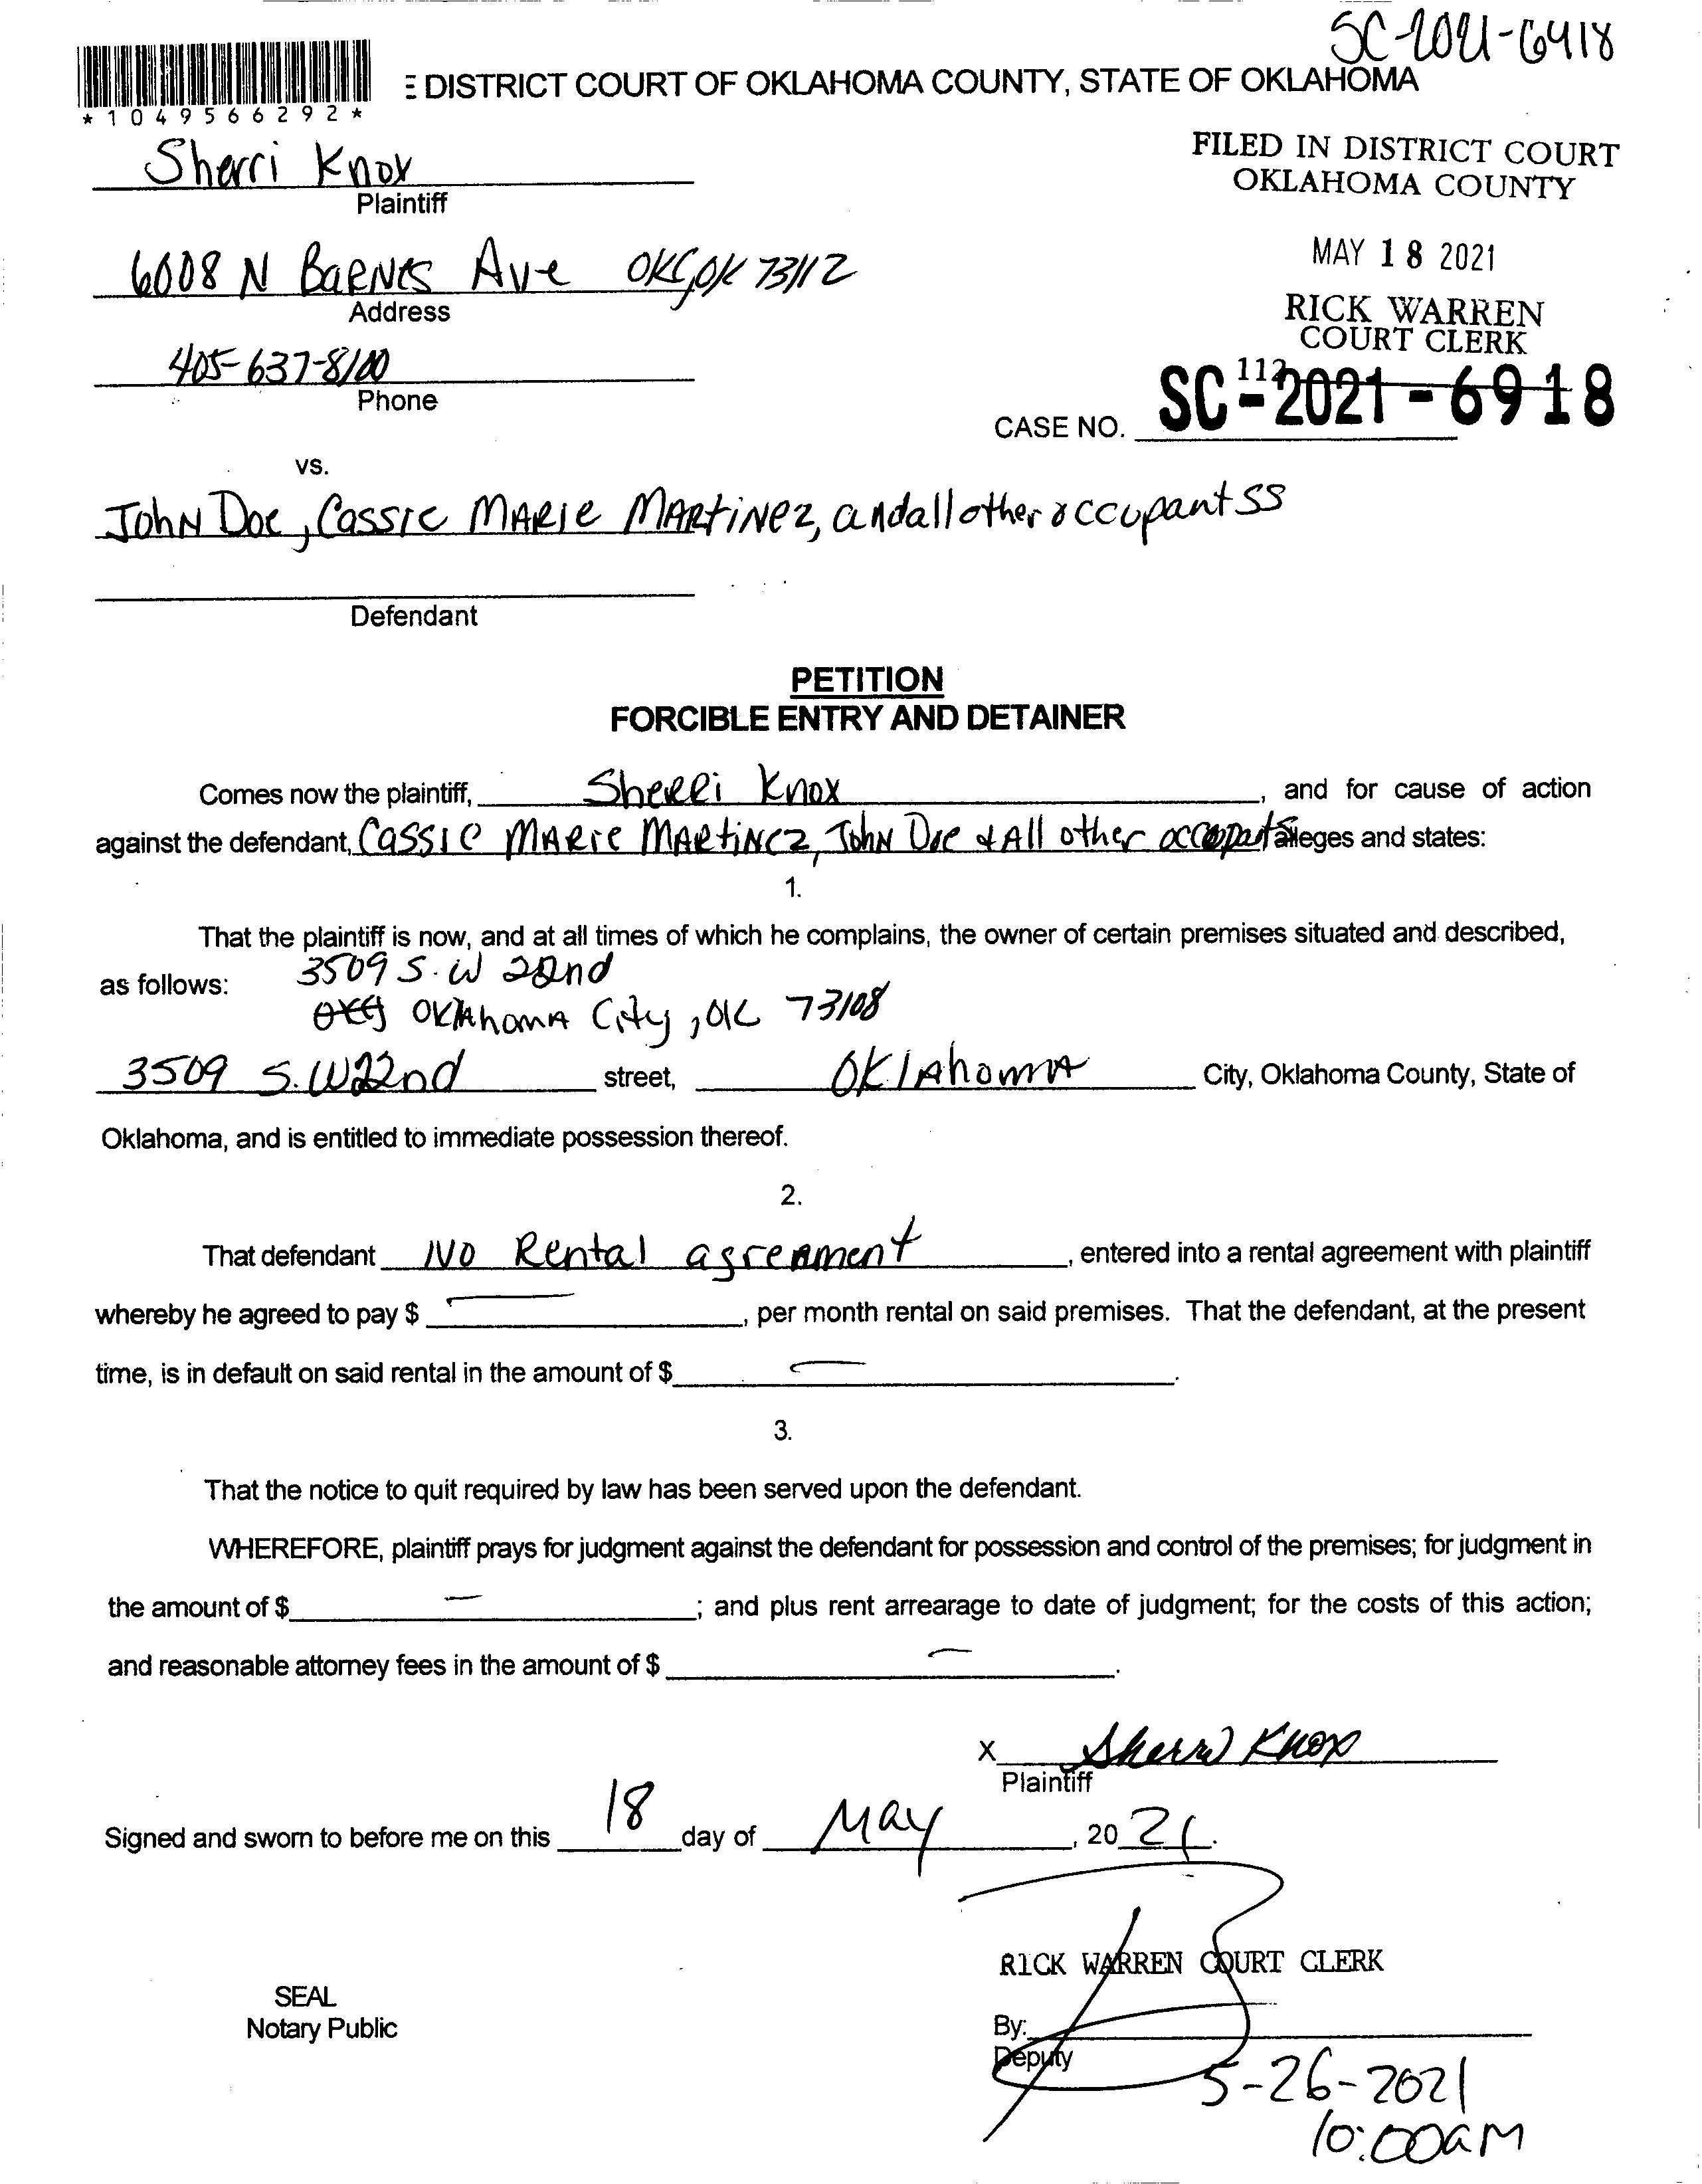 SC-2021-6918
*1049566292*
E DISTRICT COURT OF OKLAHOMA COUNTY, STATE OF OKLAHOMA
Sherri Knox
Plaintiff
FILED IN DISTRICT COURT
OKLAHOMA COUNTY
6008 N BARNES Ave OKC, OK 73112
Address
MAY 18 2021
RICK WARREN
COURT CLERK
405-637-8100
Phone
112
CASE NO. SC-2021-6918
vs.
John Doe, Cassie MARIE MARtiNez, and all other occupantss
Defendant
PETITION
FORCIBLE ENTRY AND DETAINER
Comes now the plaintiff, SheRRi Knox, and for cause of action
against the defendant, Cassie MARIE MARtiNez, JohN Doe & All other alleges and states:
1.
That the plaintiff is now, and at all times of which he complains, the owner of certain premises situated and described,
as follows: 3509 S.W 22nd
OKlAhomA City, OK 73108
3509 S.W 22nd street, OKlAhomA City, Oklahoma County, State of
Oklahoma, and is entitled to immediate possession thereof.
2.
That defendant NO Rental agreement, entered into a rental agreement with plaintiff
whereby he agreed to pay $ —, per month rental on said premises. That the defendant, at the present
time, is in default on said rental in the amount of $ —.
3.
That the notice to quit required by law has been served upon the defendant.
WHEREFORE, plaintiff prays for judgment against the defendant for possession and control of the premises; for judgment in
the amount of $ —; and plus rent arrearage to date of judgment; for the costs of this action;
and reasonable attorney fees in the amount of $ —.
X Sherri Knox
Plaintiff
Signed and sworn to before me on this 18 day of May, 2021.
RICK WARREN COURT CLERK
SEAL
Notary Public
By:
Deputy
5-26-2021
10:00am